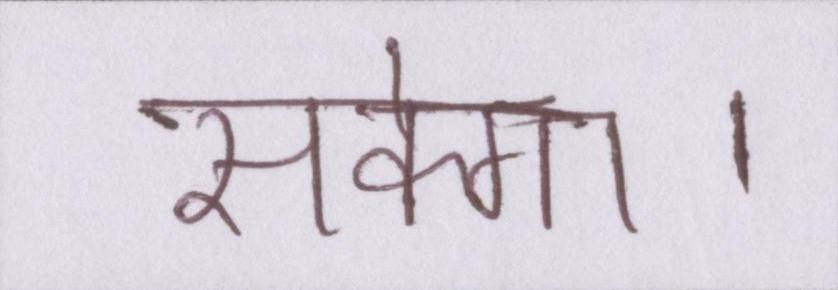 सकेगा ।